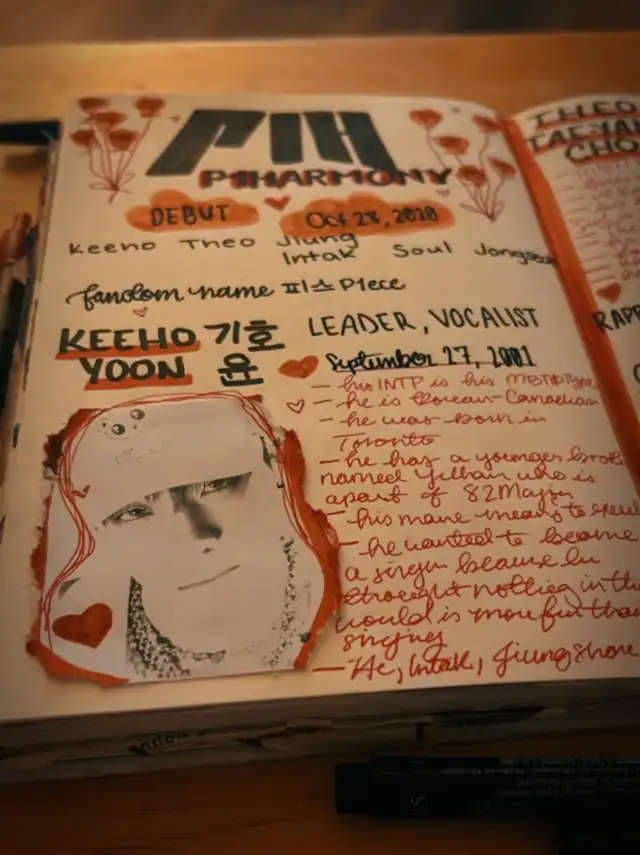 P1H
P1HARMONY
DEBUT Oct 28, 2020
Keeho Theo Jiung
Intak Soul Jongseob
fandom name 피스 P1ece
KEEHO 기호 LEADER, VOCALIST
YOON 윤 September 27, 2001
– his INTP is his MBTI type
– he is Korean-Canadian
– he was born in
Toronto
– he has a younger
named who is
apart of 82Major
– his name means to
– he wanted to become
a singer because he
thought nothing in the
world is more fun than
singing
– He, Intak, Jiung share
THEO
TAEYANG
CHOI
RAPP